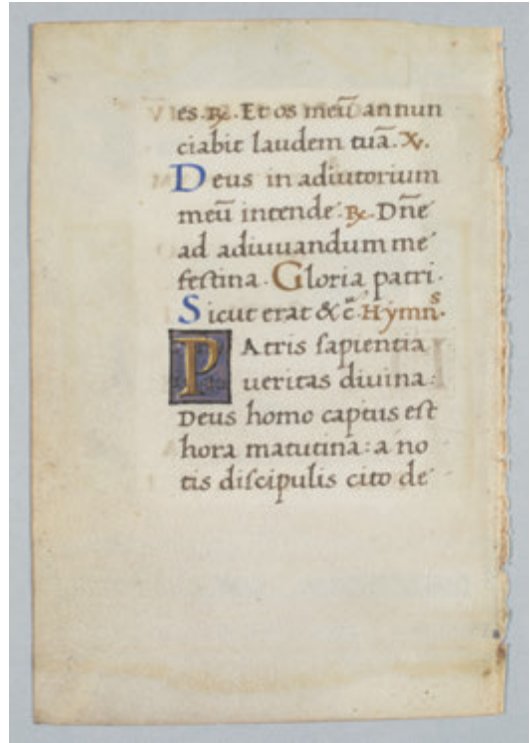 es. ℟. Et os meū annun
ciabit laudem tuā. ℣.
Deus in adiutorium
meū intende. ℟. Dn̄e
ad adiuuandum me
feſtina. Gloria patri.
Sicut erat & c̄. Hymnˢ.
PAtris ſapientia
ueritas diuina:
Deus homo captus eſt
hora matutina: a no
tis diſcipulis cito de